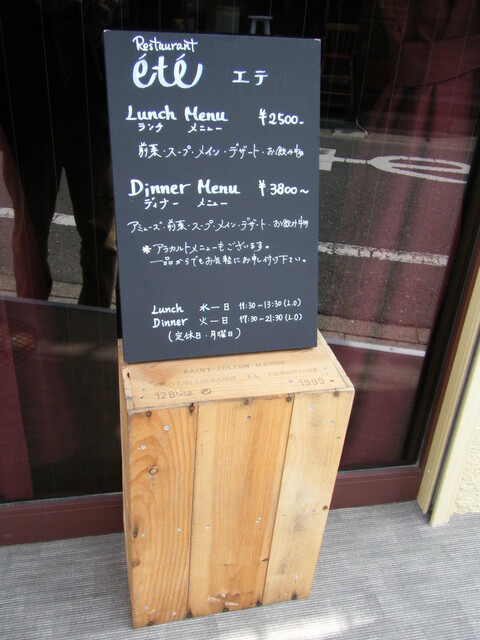 Restaurant
été エテ
Lunch Menu ¥2500-
ランチ メニュー
前菜・スープ・メイン・デザート・お飲み物
Dinner Menu ¥3800~
ディナー メニュー
アミューズ・前菜・スープ・メイン・デザート・お飲み物
*アラカルトメニューもございます。
一品からでもお気軽にお申し付け下さい。
Lunch 水―日 11:30~13:30(L.O)
Dinner 火―日 17:30~21:30(L.O)
(定休日・月曜日)
SAINT-JULIEN MEDOC
1998